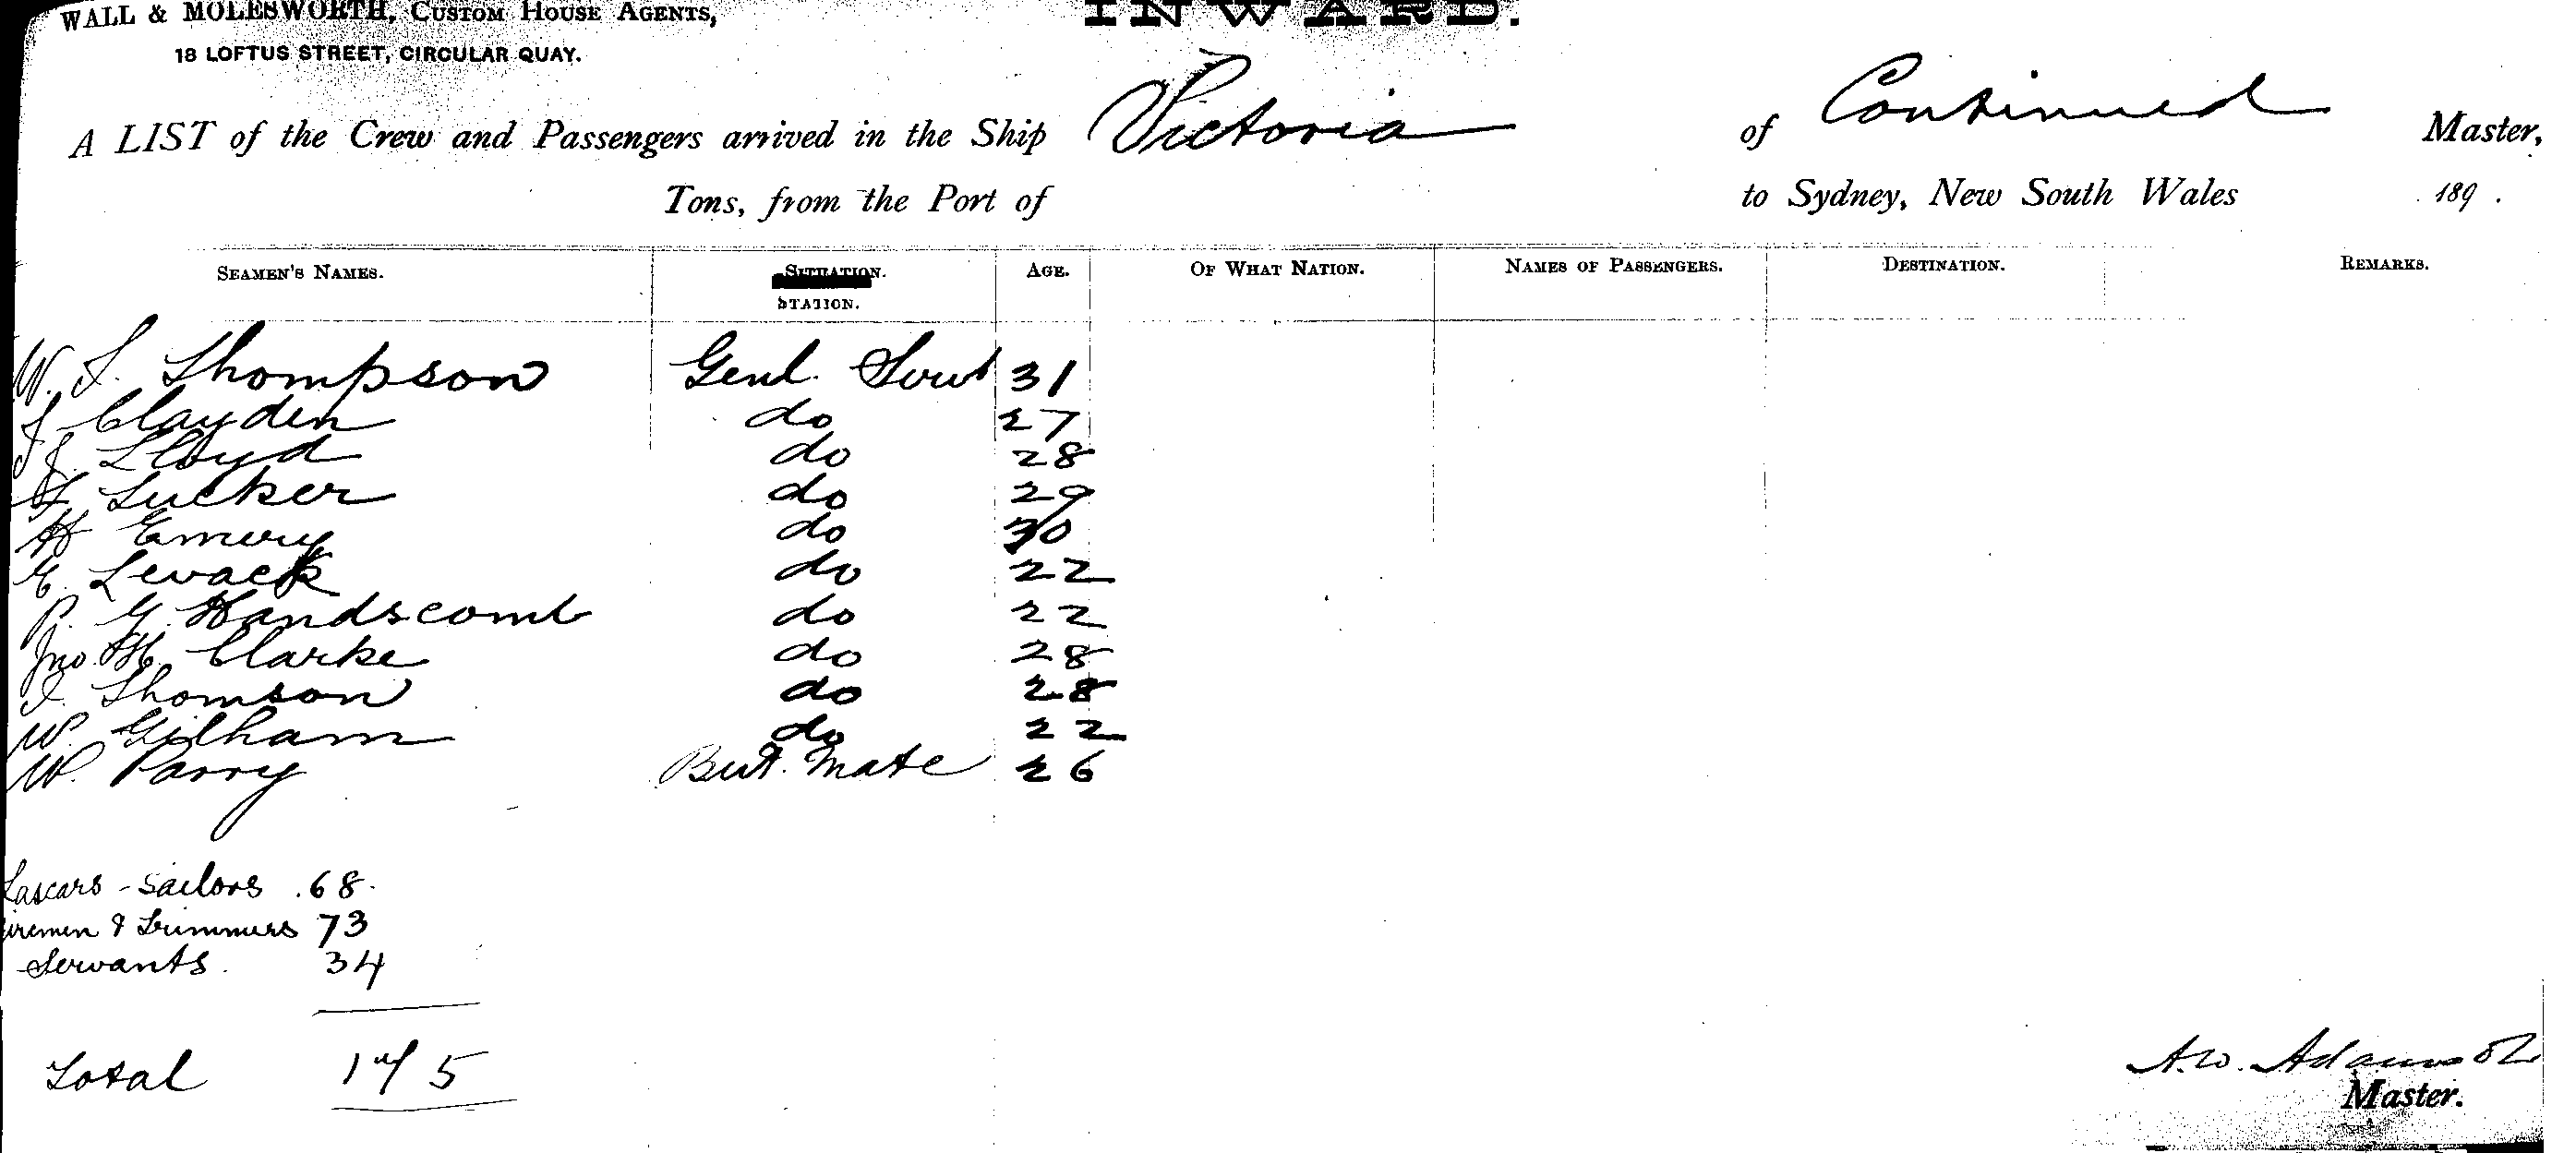 WALL & MOLESWORTH, CUSTOM HOUSE AGENTS,
18 LOFTUS STREET, CIRCULAR QUAY.
INWARD.
A LIST of the Crew and Passengers arrived in the Ship Victoria of Continued Master,
Tons, from the Port of to Sydney, New South Wales 189 .
SEAMEN'S NAMES. SITUATION. STATION. AGE. OF WHAT NATION. NAMES OF PASSENGERS. DESTINATION. REMARKS.
W. J. Thompson Genl. Servt 31
J Clayden do 27
Lloyd do 28
Tucker do 29
H Emery do 30
E. Levack do 22
P. G. Handscomb do 22
Jno. H. Clarke do 28
J. Thomson do 28
W. Gilham do 22
W. Parry But. Mate 26
Lascars - Sailors . 68.
iremen & Trimmers 73
Servants. 34
Total 175
A. W. Adamson
Master.